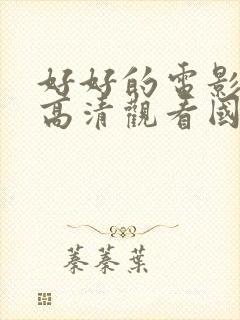 好好的電影
高清觀看國
蓁蓁葉